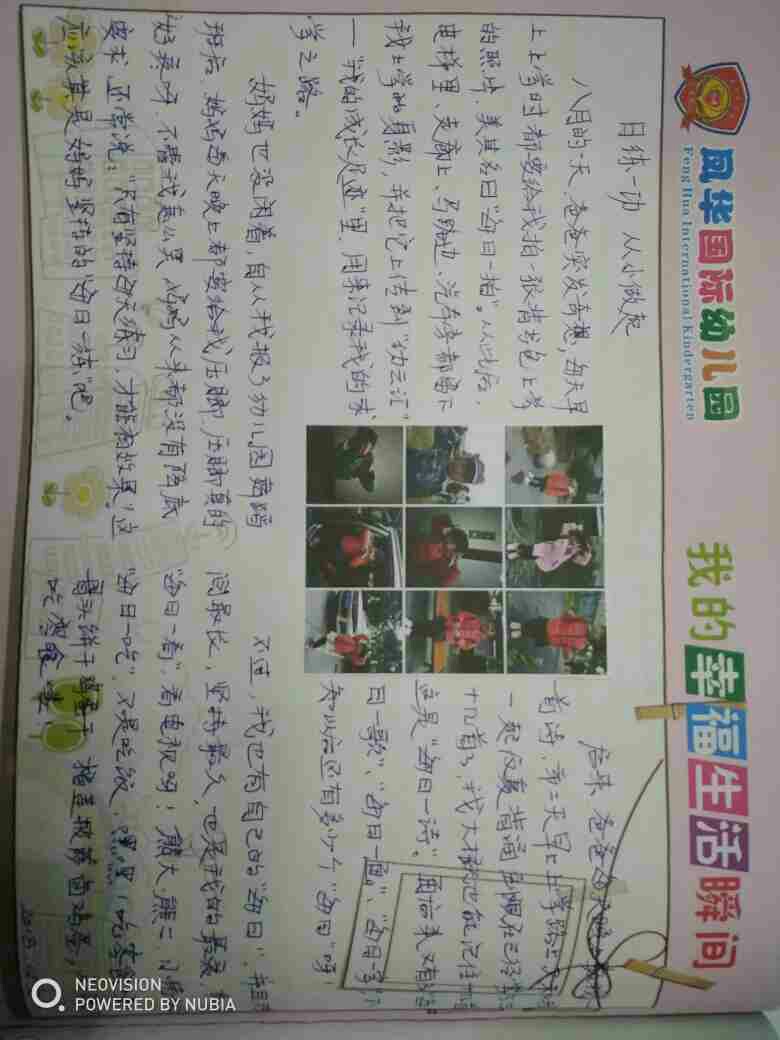 凤华国际幼儿园
Feng Hua International Kindergarten
我的幸福生活瞬间
日练一功 从小做起
八月的一天,爸爸突发奇想,每天早
上上学时都要给我拍一张背书包上学
的照片,美其名曰“每日一拍”。从此后,
电梯里、走廊上、马路边、汽车旁都留下
我上学的身影,并把它上传到“幼云汇”
一“我的成长足迹”里,用来记录我的求
学之路。
妈妈也没闲着,自从我报了幼儿园舞蹈
班后,妈妈每天晚上都要给我压脚,压脚真的
好疼呀,不管我怎么哭,妈妈从来都没有降底
要求,还常说:“只有坚持每天练习,才能有效果!这
应该算是妈妈坚持的“每日一练”吧。
后来,爸爸每天
首诗,第二天早上上学路上
一更反复背诵,到现在已经
十几首了,我大都能记住
这是“每日一诗”。
日一歌”、“每日一画”、“每日一字”
知以后还有多少个“每日”呀!
不过,我也有自己的“每日”,并且
间最长,坚持最久,也是我的最爱,
“每日一看”,看电视呀!熊大、熊二、
“每日一吃”,又是吃饭,嘿嘿!吃
骨头饼干
吃零食
NEOVISION
POWERED BY NUBIA